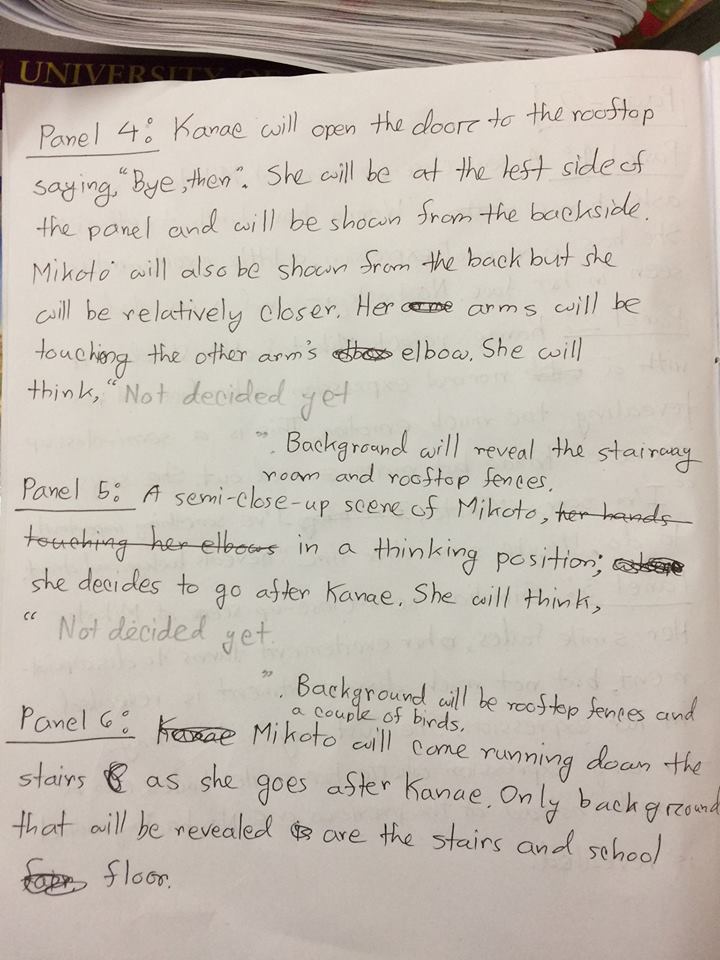 UNIVERSITY
Panel 4: Kanae will open the door to the rooftop
saying, "Bye, then". She will be at the left side of
the panel and will be shown from the backside.
Mikoto will also be shown from the back but she
will be relatively closer. Her arms will be
touching the other arm's elbow. She will
think, "Not decided yet
". Background will reveal the stairway
room and rooftop fences.
Panel 5: A semi-close-up scene of Mikoto, her hands
touching her elbows in a thinking position;
she decides to go after Kanae. She will think,
" Not decided yet.
". Background will be rooftop fences and
a couple of birds.
Panel 6: Kanae Mikoto will come running down the
stairs as she goes after Kanae. Only background
that will be revealed is are the stairs and school
floor.